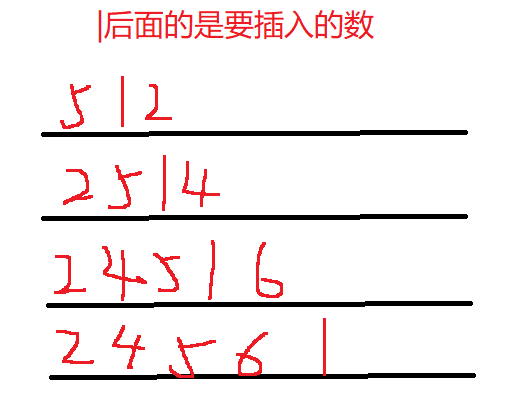 |后面的是要插入的数
5|2
25|4
245|6
2456|